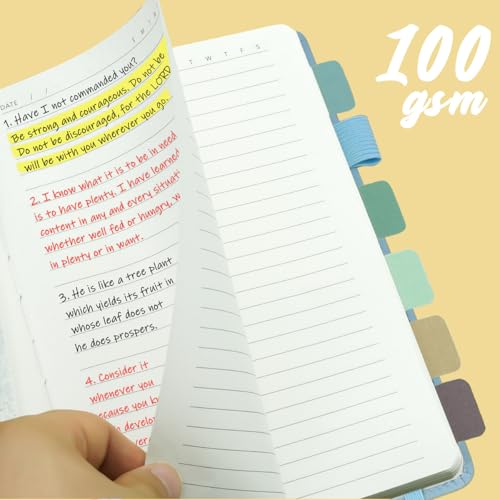 100
gsm
S
T W T F S
DATE / /
1. Have I not commanded you?
Be strong and courageous. Do not be
Do not be discouraged, for the LORD
will be with you wherever you go.
2. I know what it is to be in need
is to have plenty. I have learned
content in any and every situat
whether well fed or hungry, w
in plenty or in want.
3. He is like a tree plant
which yields its fruit in
whose leaf does not
he does prospers.
4. Consider it
whenever you
because you k